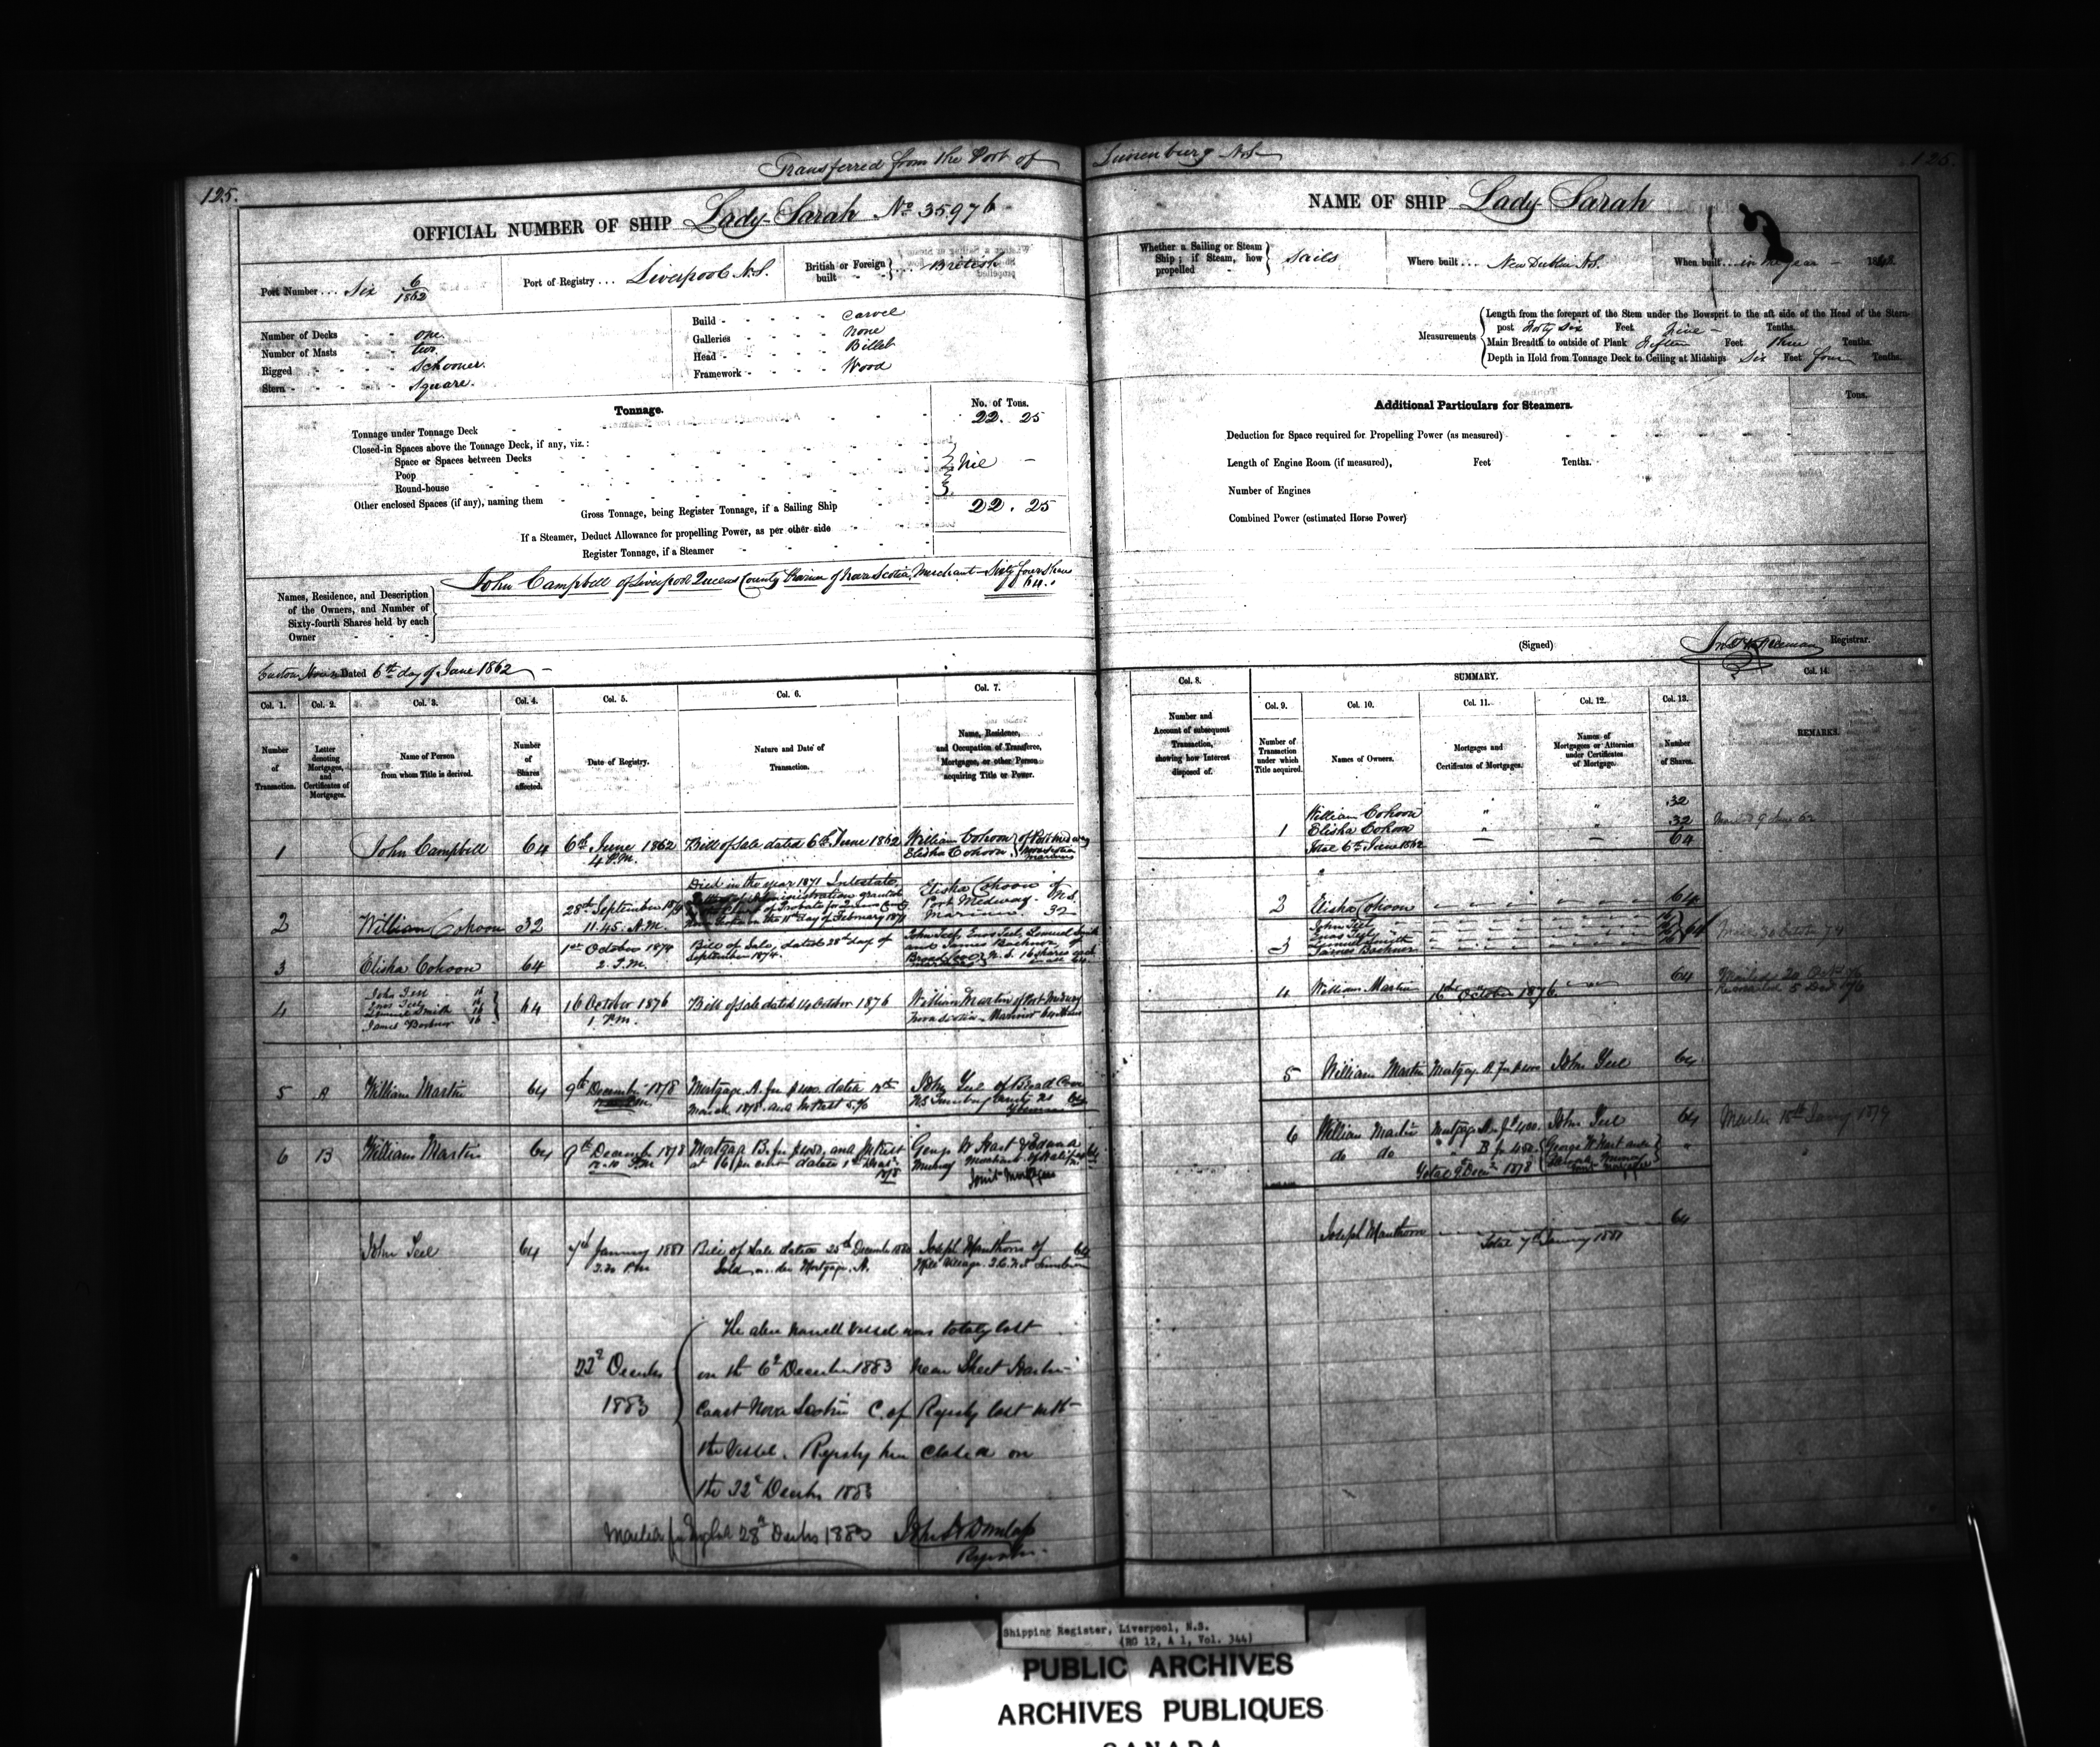 Transferred from the Port of Lunenburg N.S.
125.
125.
OFFICIAL NUMBER OF SHIP Lady Sarah No 35976
Port Number ... Six 6/1862
Port of Registry ... Liverpool N.S.
British or Foreign built - - British
Number of Decks - - one
Number of Masts - - two
Rigged - - - - Schooner.
Stern - - - - - Square.
Build - - - - - Carvel
Galleries - - - - none
Head - - - - - Billet
Framework - - - - Wood
Tonnage.
No. of Tons.
Tonnage under Tonnage Deck 22. 25
Closed-in Spaces above the Tonnage Deck, if any, viz.:
Space or Spaces between Decks
Poop
Round-house
Nil
Other enclosed Spaces (if any), naming them
Gross Tonnage, being Register Tonnage, if a Sailing Ship 22. 25
If a Steamer, Deduct Allowance for propelling Power, as per other side
Register Tonnage, if a Steamer
Names, Residence, and Description
of the Owners, and Number of
Sixty-fourth Shares held by each
Owner
John Campbell of Liverpool Queens County Province of Nova Scotia, Merchant Sixty four Shares
64.
Custom House Dated 6th day of June 1862
NAME OF SHIP Lady Sarah
Whether a Sailing or Steam
Ship; if Steam, how
propelled
Sails
Where built ... New Dublin N.S.
When built ... in the year
Measurements
Length from the forepart of the Stem under the Bowsprit to the aft side of the Head of the Stern-
post Forty six Feet nine Tenths.
Main Breadth to outside of Plank Fifteen Feet three Tenths.
Depth in Hold from Tonnage Deck to Ceiling at Midships Six Feet four Tenths.
Additional Particulars for Steamers.
Tons.
Deduction for Space required for Propelling Power (as measured)
Length of Engine Room (if measured), Feet Tenths.
Number of Engines
Combined Power (estimated Horse Power)
(Signed) Registrar.
Col. 1. Col. 2. Col. 3. Col. 4. Col. 5. Col. 6. Col. 7.
Number of Transaction.
Letter denoting Mortgages, and Certificates of Mortgages.
Name of Person from whom Title is derived.
Number of Shares affected.
Date of Registry.
Nature and Date of Transaction.
Name, Residence, and Occupation of Transferee, Mortgagee, or other Person acquiring Title or Power.
1 John Campbell 64 6th June 1862 4 P.M. Bill of Sale dated 6th June 1862 William Cohoon Elisha Cohoon of Port Medway Nova Scotia Mariners
2 William Cohoon 32 28th September 11.45. A.M.
Died in the year 1871 Intestate
Letters of Administration granted
Court of Probate for Queens County
on the 11th day of February
Elisha Cohoon of
Port Medway N.S.
Mariner. 32
3 Elisha Cohoon 64 1st October 1874 2. P.M. Bill of Sale, dated 28th day of September 1874.
John Teel, Enos Teel, Lemuel Smith
and James Bachner, of
Broad Cove N.S. 16 shares each
4 John Teel 16
Enos Teel 16
Lemuel Smith 16
James Bachner 16
64 16 October 1876 1 P.M. Bill of Sale dated 14 October 1876
William Martin of Port Medway
Nova Scotia - Mariner
5 A William Martin 64 9th December 1878
Mortgage A. for $400. dated
March 1878. and Interest
John Teel of Broad Cove
6 B William Martin 64 9th December 1878
Mortgage B. for $450. and Interest
at per cent dated
1878
George W Hart & Edward
Murray Merchants of Halifax
Joint Mortgagees
John Teel 64 7th January 1881 2.30 P.M.
Bill of Sale dated 25th December 1880
Sold under Mortgage. A.
Joseph Manthorn of 64
Mill Village
22d December
1883
The above named Vessel was totaly lost
on the 6th December 1883 near Sheet Harbor
Coast Nova Scotia C. of Registry lost with
the Vessel. Registry here closed on
the 22d December 1883
28th Decbr 1883 John Dunlap
Registrar.
Col. 8.
Number and Account of subsequent Transaction, showing how Interest disposed of.
SUMMARY.
Col. 9. Col. 10. Col. 11. Col. 12. Col. 13. Col. 14.
Number of Transaction under which Title acquired.
Names of Owners.
Mortgages and Certificates of Mortgages.
Names of Mortgagees or Attornies under Certificates of Mortgage.
Number of Shares.
REMARKS.
1 William Cohoon " " 32
Elisha Cohoon " " 32
Total 6th June 1862 64
2 Elisha Cohoon 64
3 John Teel 16
Enos Teel 16
Lemuel Smith 16
James Bachner 16
64
4 William Martin 16th October 1876. 64
5 William Martin Mortgage A. for $400 John Teel 64
6 William Martin Mortgage A. for $400. John Teel 64
do do " B for 450. George W Hart and
Edward Murray
Total 9 Decr 1878
Joseph Manthorn 64
Total 7th January 1881
Shipping Register, Liverpool, N.S.
(RG 12, A 1, Vol. 344)
PUBLIC ARCHIVES
ARCHIVES PUBLIQUES
CANADA